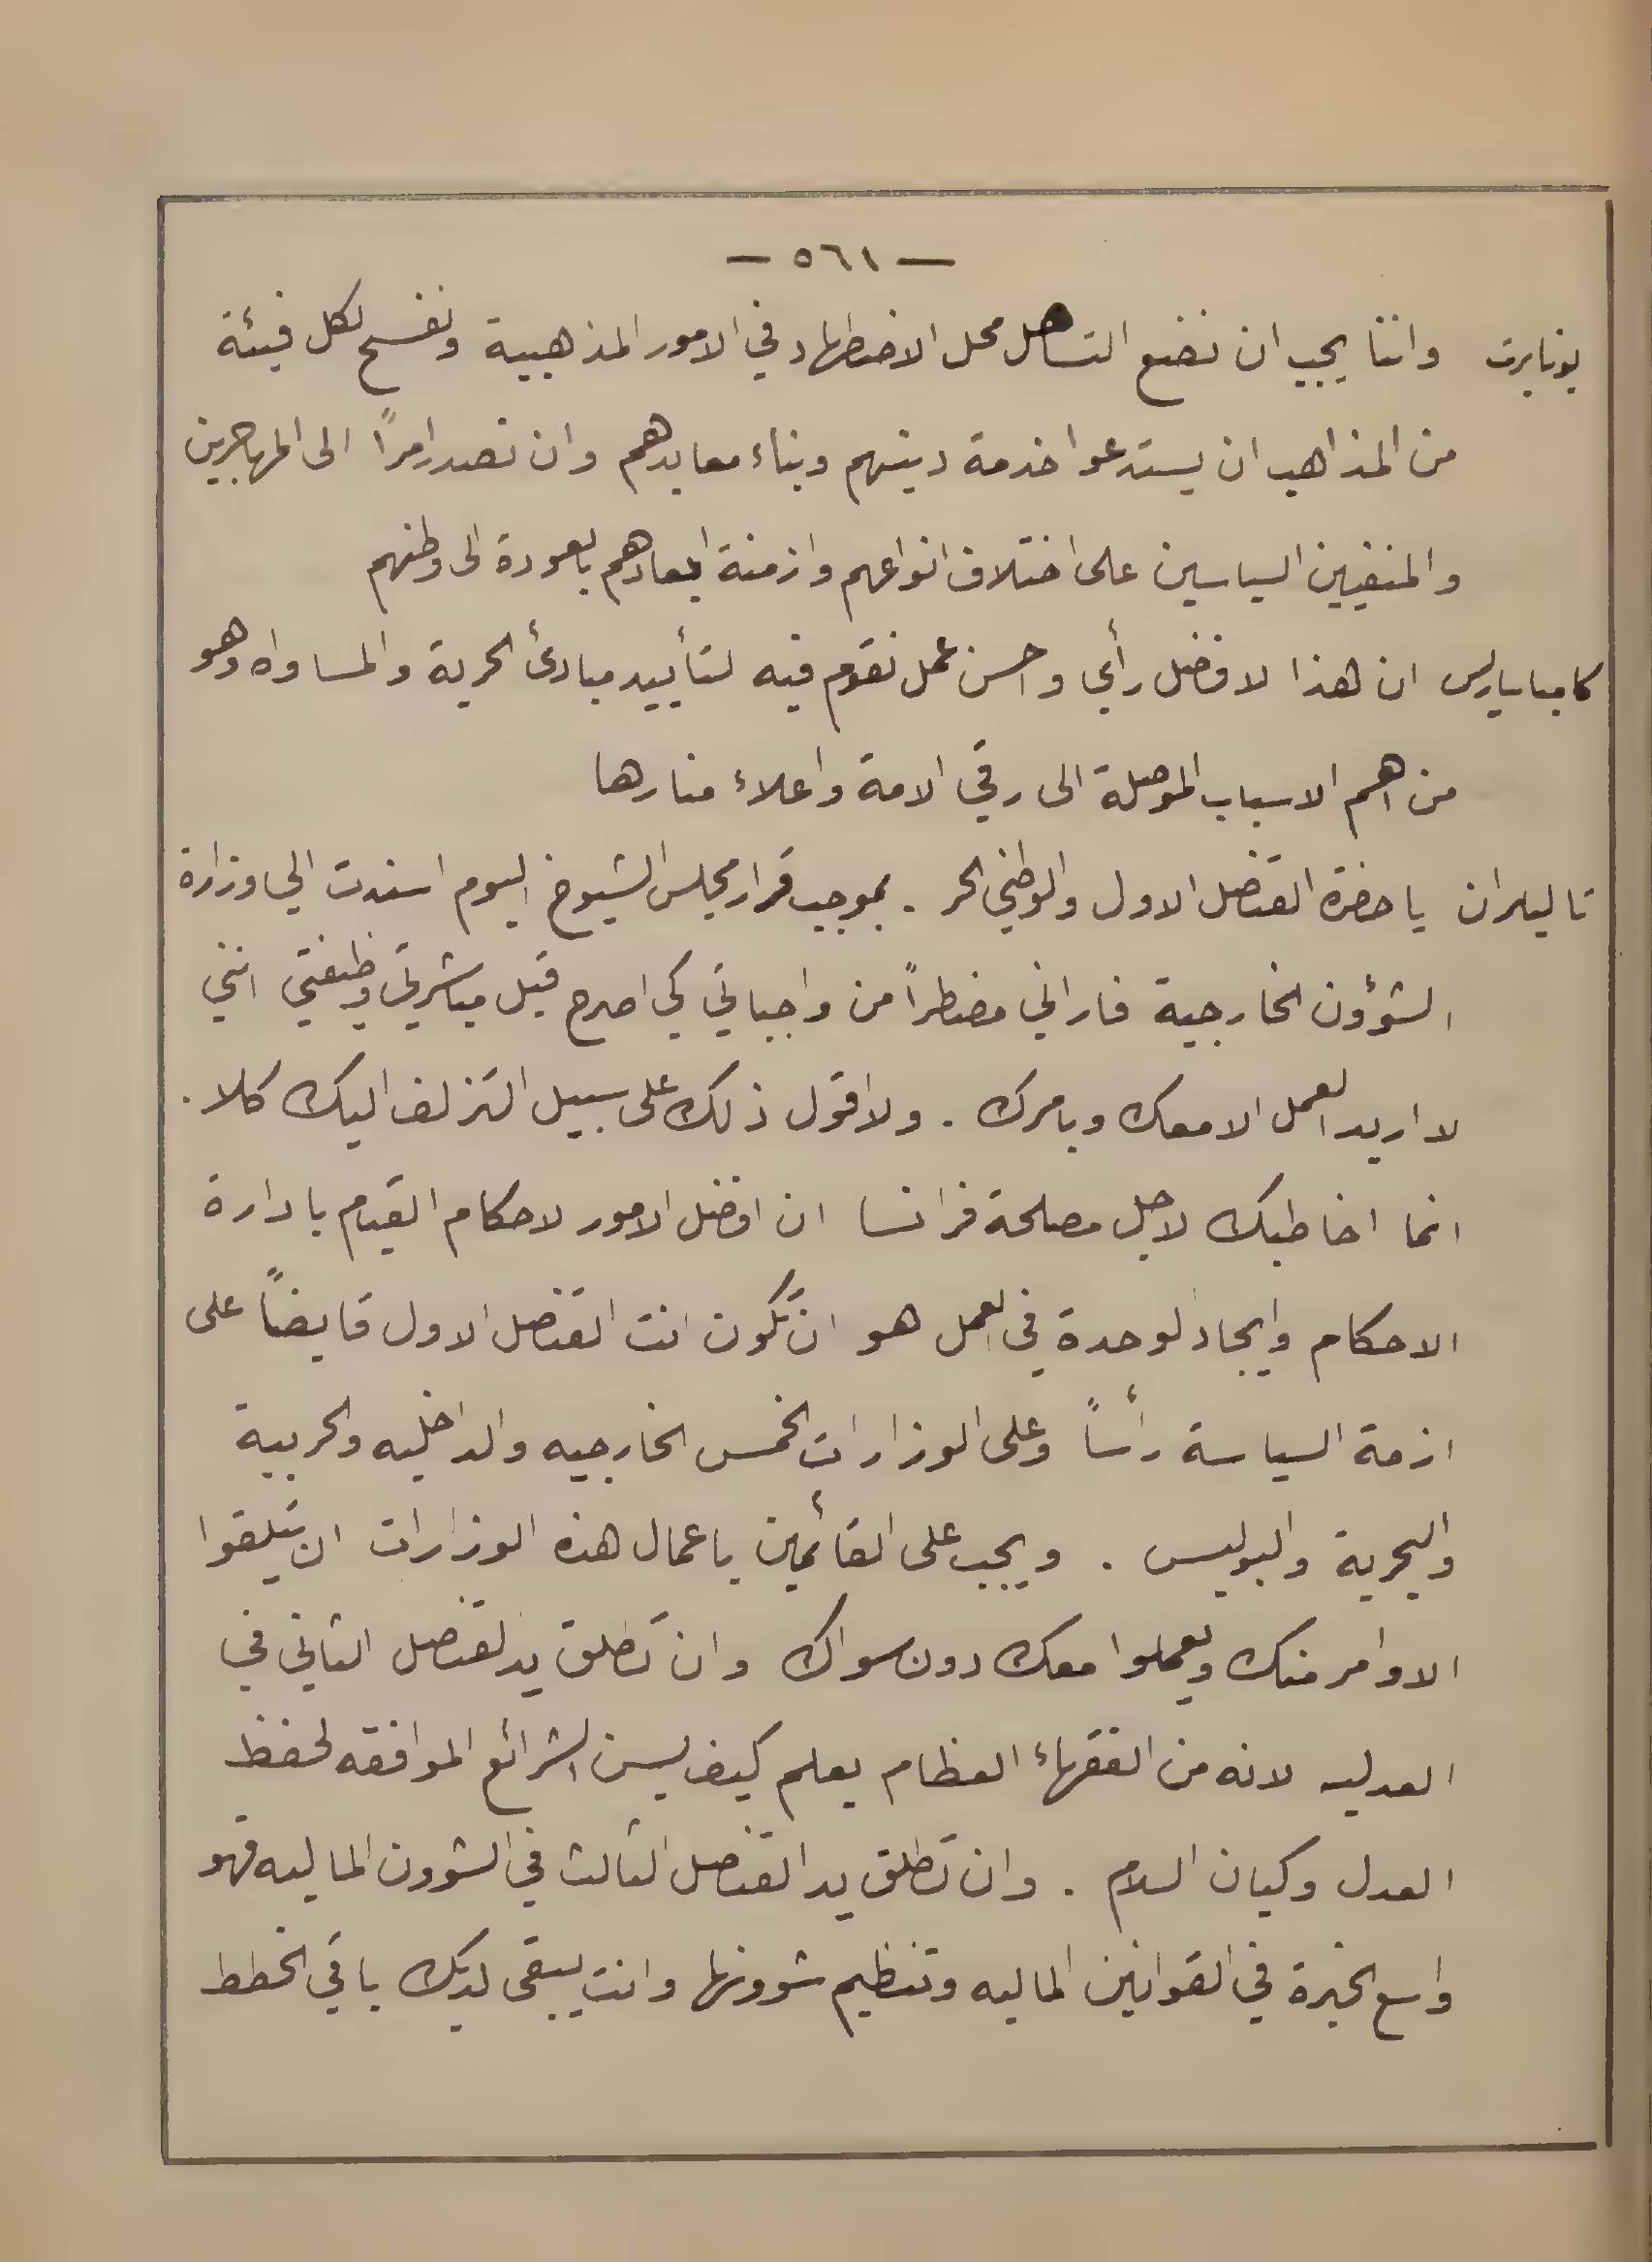 — ٥٦١ —
بونابرت واننا يجب ان نضع التساهل محل الاضطهاد في الامور المذهبية ونفسح لكل فيئة
من المذاهب ان يستدعوا خدمة دينهم وبناء معابدهم وان نصدر امراً الى المهاجرين
والمنفيين السياسين على اختلاف انواعهم وازمنة ابعادهم بالعودة الى وطنهم
كامباسارلس ان هذا لافضل رأي واحسن عمل نقوم فيه لتأييد مبادئ الحرية والمساواه وهو
من اهم الاسباب الموصلة الى رقي الامة واعلاء منارها
تاليران يا حضرة القنصل الاول والوطني الحر . بموجب قرار مجلس الشيوخ اليوم اسندت الي وزارة
الشؤون الخارجية فاراني مضطراً من واجباتي كي اصرح قبل مباشرتي وظيفتي انني
لا اريد العمل الا معك وبامرك . ولا اقول ذلك على سبيل التزلف اليك كلا .
انما اخاطبك لاجل مصلحة فرانسا ان افضل الامور لاحكام القيام بادارة
الاحكام وايجاد لوحدة في العمل هو ان تكون انت القنصل الاول قابضاً على
ازمة السياسة رأساً وعلى الوزارات الخمس الخارجيه والداخليه والحربية
والبحرية والبوليس . ويجب على القائمين باعمال هذه الوزارات ان يتلقوا
الاوامر منك ويعملوا معك دون سواك وان تطلق يد لقنصل الثاني في
العدليه لانه من الفقهاء العظام يعلم كيف يسن الشرائع الموافقه لحفظ
العدل وكيان السلام . وان تطلق يد القنصل الثالث في الشوون الماليه فهو
واسع الخبرة في القوانين الماليه وتنظيم شوونها وانت يبقى لديك باقي الخطط